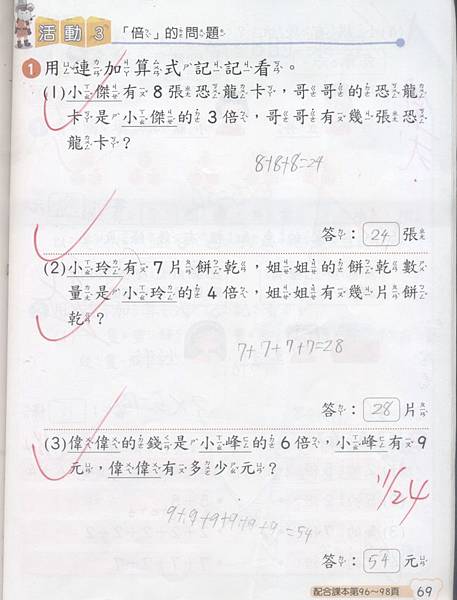 活動3 「倍」的問題
1 用連加算式記記看。
(1)小傑有8張恐龍卡,哥哥的恐龍
卡是小傑的3倍,哥哥有幾張恐
龍卡?
8+8+8=24
答:24張
(2)小玲有7片餅乾,姐姐的餅乾數
量是小玲的4倍,姐姐有幾片餅
乾?
7+7+7+7=28
答:28片
(3)偉偉的錢是小峰的6倍,小峰有9
元,偉偉有多少元?
11/24
9+9+9+9+9+9=54
答:54元
配合課本第96~98頁 69